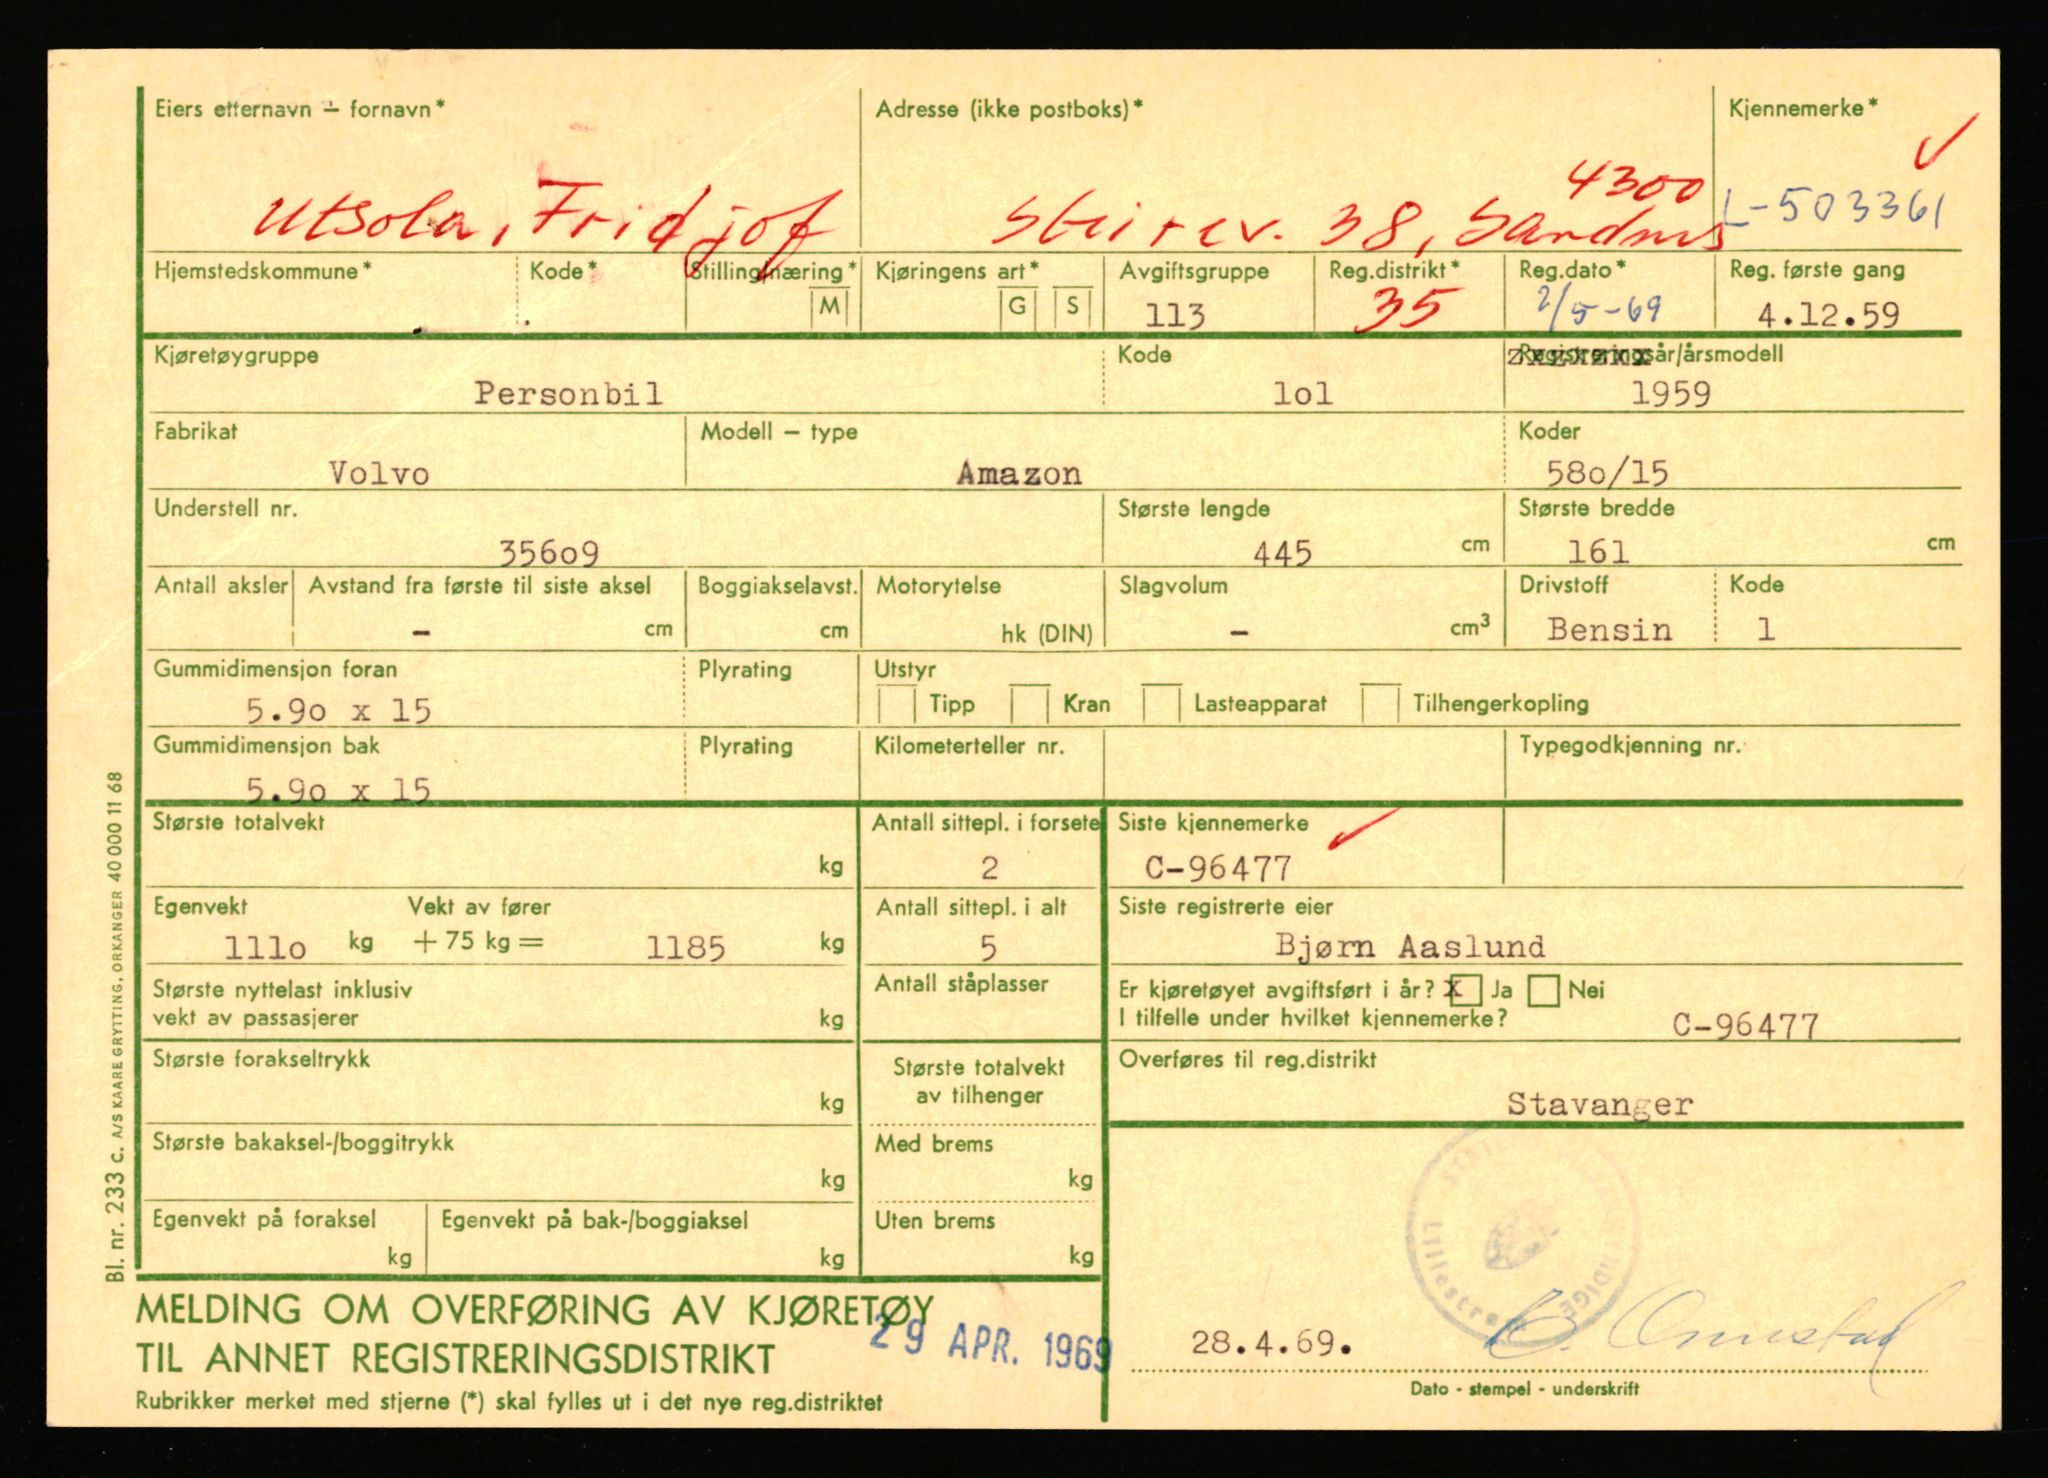 Eiers etternavn – fornavn*
Adresse (ikke postboks)*
Kjennemerke*
4300
Utsola, Fridjof
38,
L-503361
Hjemstedskommune*
Kode*
Stilling/næring*
M
Kjøringens art*
G
S
Avgiftsgruppe
113
Reg.distrikt*
35
Reg.dato*
2/5-69
Reg. første gang
4.12.59
Kjøretøygruppe
Personbil
Kode
lol
Registreringsår/årsmodell
1959
Fabrikat
Volvo
Modell – type
Amazon
Koder
58o/15
Understell nr.
356o9
Største lengde
445 cm
Største bredde
161 cm
Antall aksler
Avstand fra første til siste aksel
– cm
Boggiakselavst.
cm
Motorytelse
hk (DIN)
Slagvolum
– cm³
Drivstoff
Bensin
Kode
1
Gummidimensjon foran
5.9o x 15
Plyrating
Utstyr
Tipp
Kran
Lasteapparat
Tilhengerkopling
Gummidimensjon bak
5.9o x 15
Plyrating
Kilometerteller nr.
Typegodkjenning nr.
Største totalvekt
kg
Antall sittepl. i forsete
2
Siste kjennemerke
C-96477
Egenvekt
111o kg
Vekt av fører
+ 75 kg = 1185 kg
Antall sittepl. i alt
5
Siste registrerte eier
Bjørn Aaslund
Største nyttelast inklusiv
vekt av passasjerer
kg
Antall ståplasser
Er kjøretøyet avgiftsført i år? X Ja Nei
I tilfelle under hvilket kjennemerke?
C-96477
Største forakseltrykk
kg
Største totalvekt
av tilhenger
Overføres til reg.distrikt
Stavanger
Største bakaksel-/boggitrykk
kg
Med brems
kg
Egenvekt på foraksel
kg
Egenvekt på bak-/boggiaksel
kg
Uten brems
kg
MELDING OM OVERFØRING AV KJØRETØY
TIL ANNET REGISTRERINGSDISTRIKT
29 APR. 1969
Rubrikker merket med stjerne (*) skal fylles ut i det nye reg.distriktet
28.4.69.
Dato - stempel - underskrift
Bl. nr. 233 c. A/S KAARE GRYTTING, ORKANGER 40 000 11 68